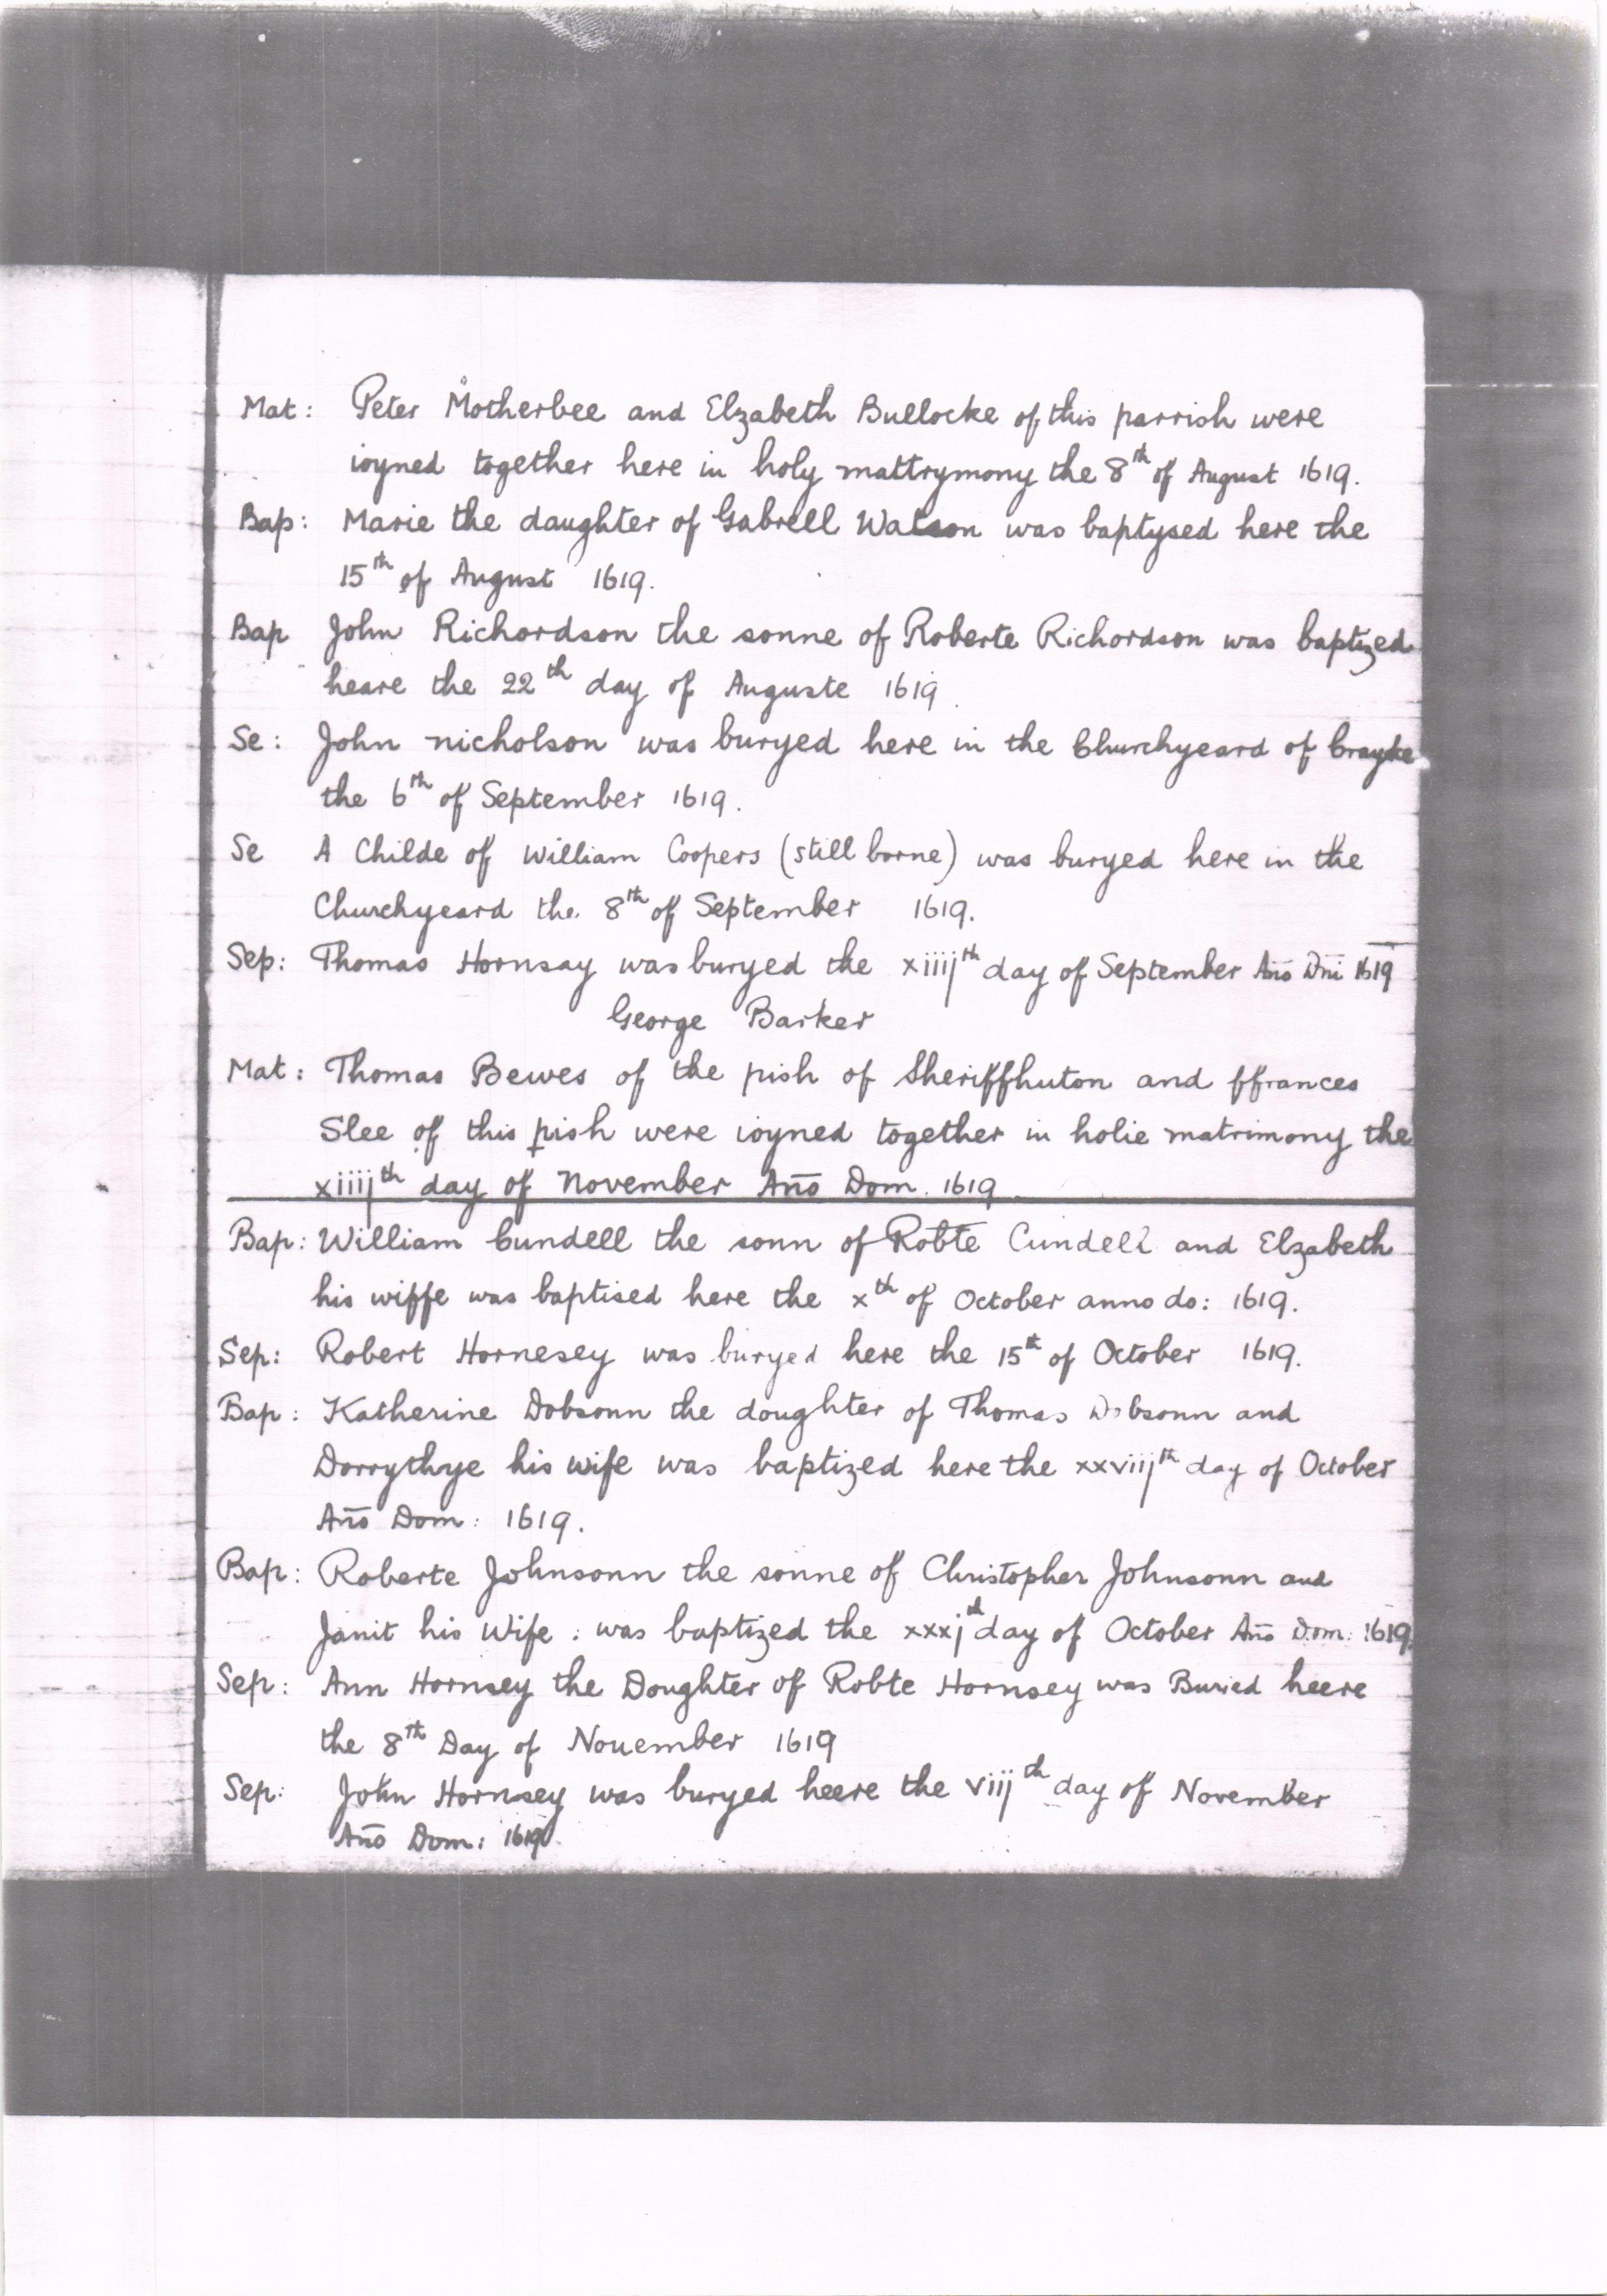 Mat: Peter Motherbee and Elzabeth Bullocke of this parrish were
ioyned together here in holy mattrymony the 8th of August 1619.
Bap: Marie the daughter of Gabrell Watson was baptysed here the
15th of August 1619.
Bap John Richardson the sonne of Roberte Richardson was baptized
heare the 22th day of Auguste 1619
Se: John nicholson was buryed here in the Churchyeard of Crayke
the 6th of September 1619.
Se A Childe of William Coopers (still borne) was buryed here in the
Churchyeard the 8th of September 1619.
Sep: Thomas Hornsay was buryed the xiiijth day of September Año Dñi 1619
George Barker
Mat: Thomas Bewes of the pish of Sheriffhuton and ffrances
Slee of this pish were ioyned together in holie matrimony the
xiiijth day of November Año Dom. 1619
Bap: William Cundell the sonn of Robte Cundell and Elzabeth
his wiffe was baptised here the xth of October anno do: 1619.
Sep: Robert Hornesey was buryed here the 15th of October 1619.
Bap: Katherine Dobsonn the doughter of Thomas Dobsonn and
Dorrythye his wife was baptized here the xxviijth day of October
Año Dom: 1619.
Bap: Roberte Johnsonn the sonne of Christopher Johnsonn and
Janit his Wife : was baptized the xxxjth day of October Año Dom: 1619.
Sep: Ann Hornsey the Doughter of Robte Hornsey was Buried heere
the 8th Day of Nouember 1619
Sep: John Hornsey was buryed heere the viijth day of November
Año Dom: 1619.